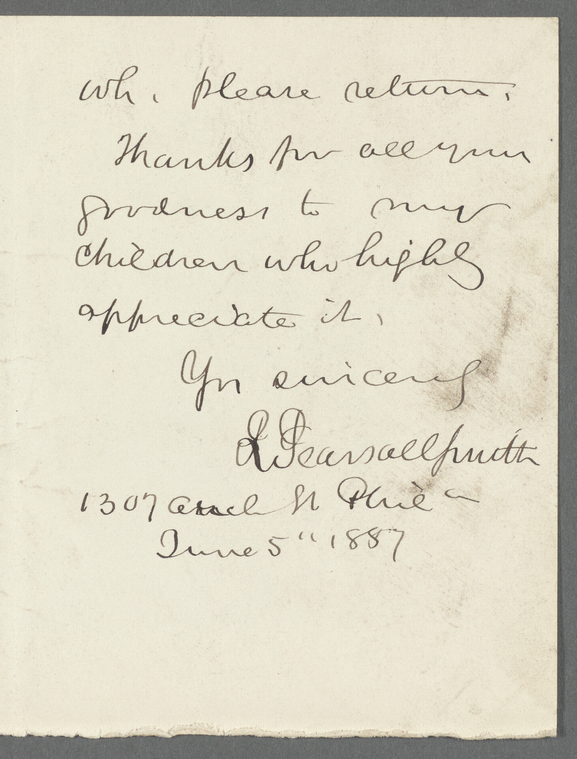 wh. please return.
Thanks for all your
goodness to my
children who highly
appreciate it.
Yrs sincerely
R Pearsall Smith
1307 Arch St Phila
June 5" 1887